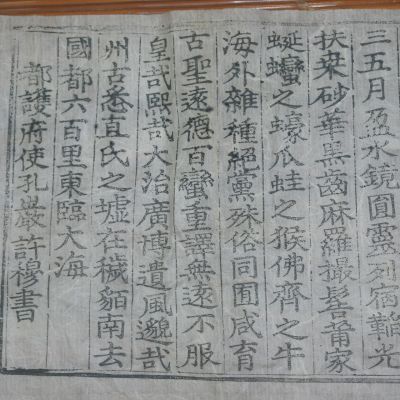 三五月盈水鏡圓靈列宿韜光
扶桒砂華黑齒麻羅撮髻莆家
蜒蠻之蠔瓜蛙之猴佛齊之牛
海外雜種絶黨殊俗同囿咸育
古聖遠德百蠻重譯無遠不服
皇哉熙哉大治廣博遺風邈哉
州古悉直氏之墟在穢貊南去
國都六百里東臨大海
都護府使孔巖許穆書